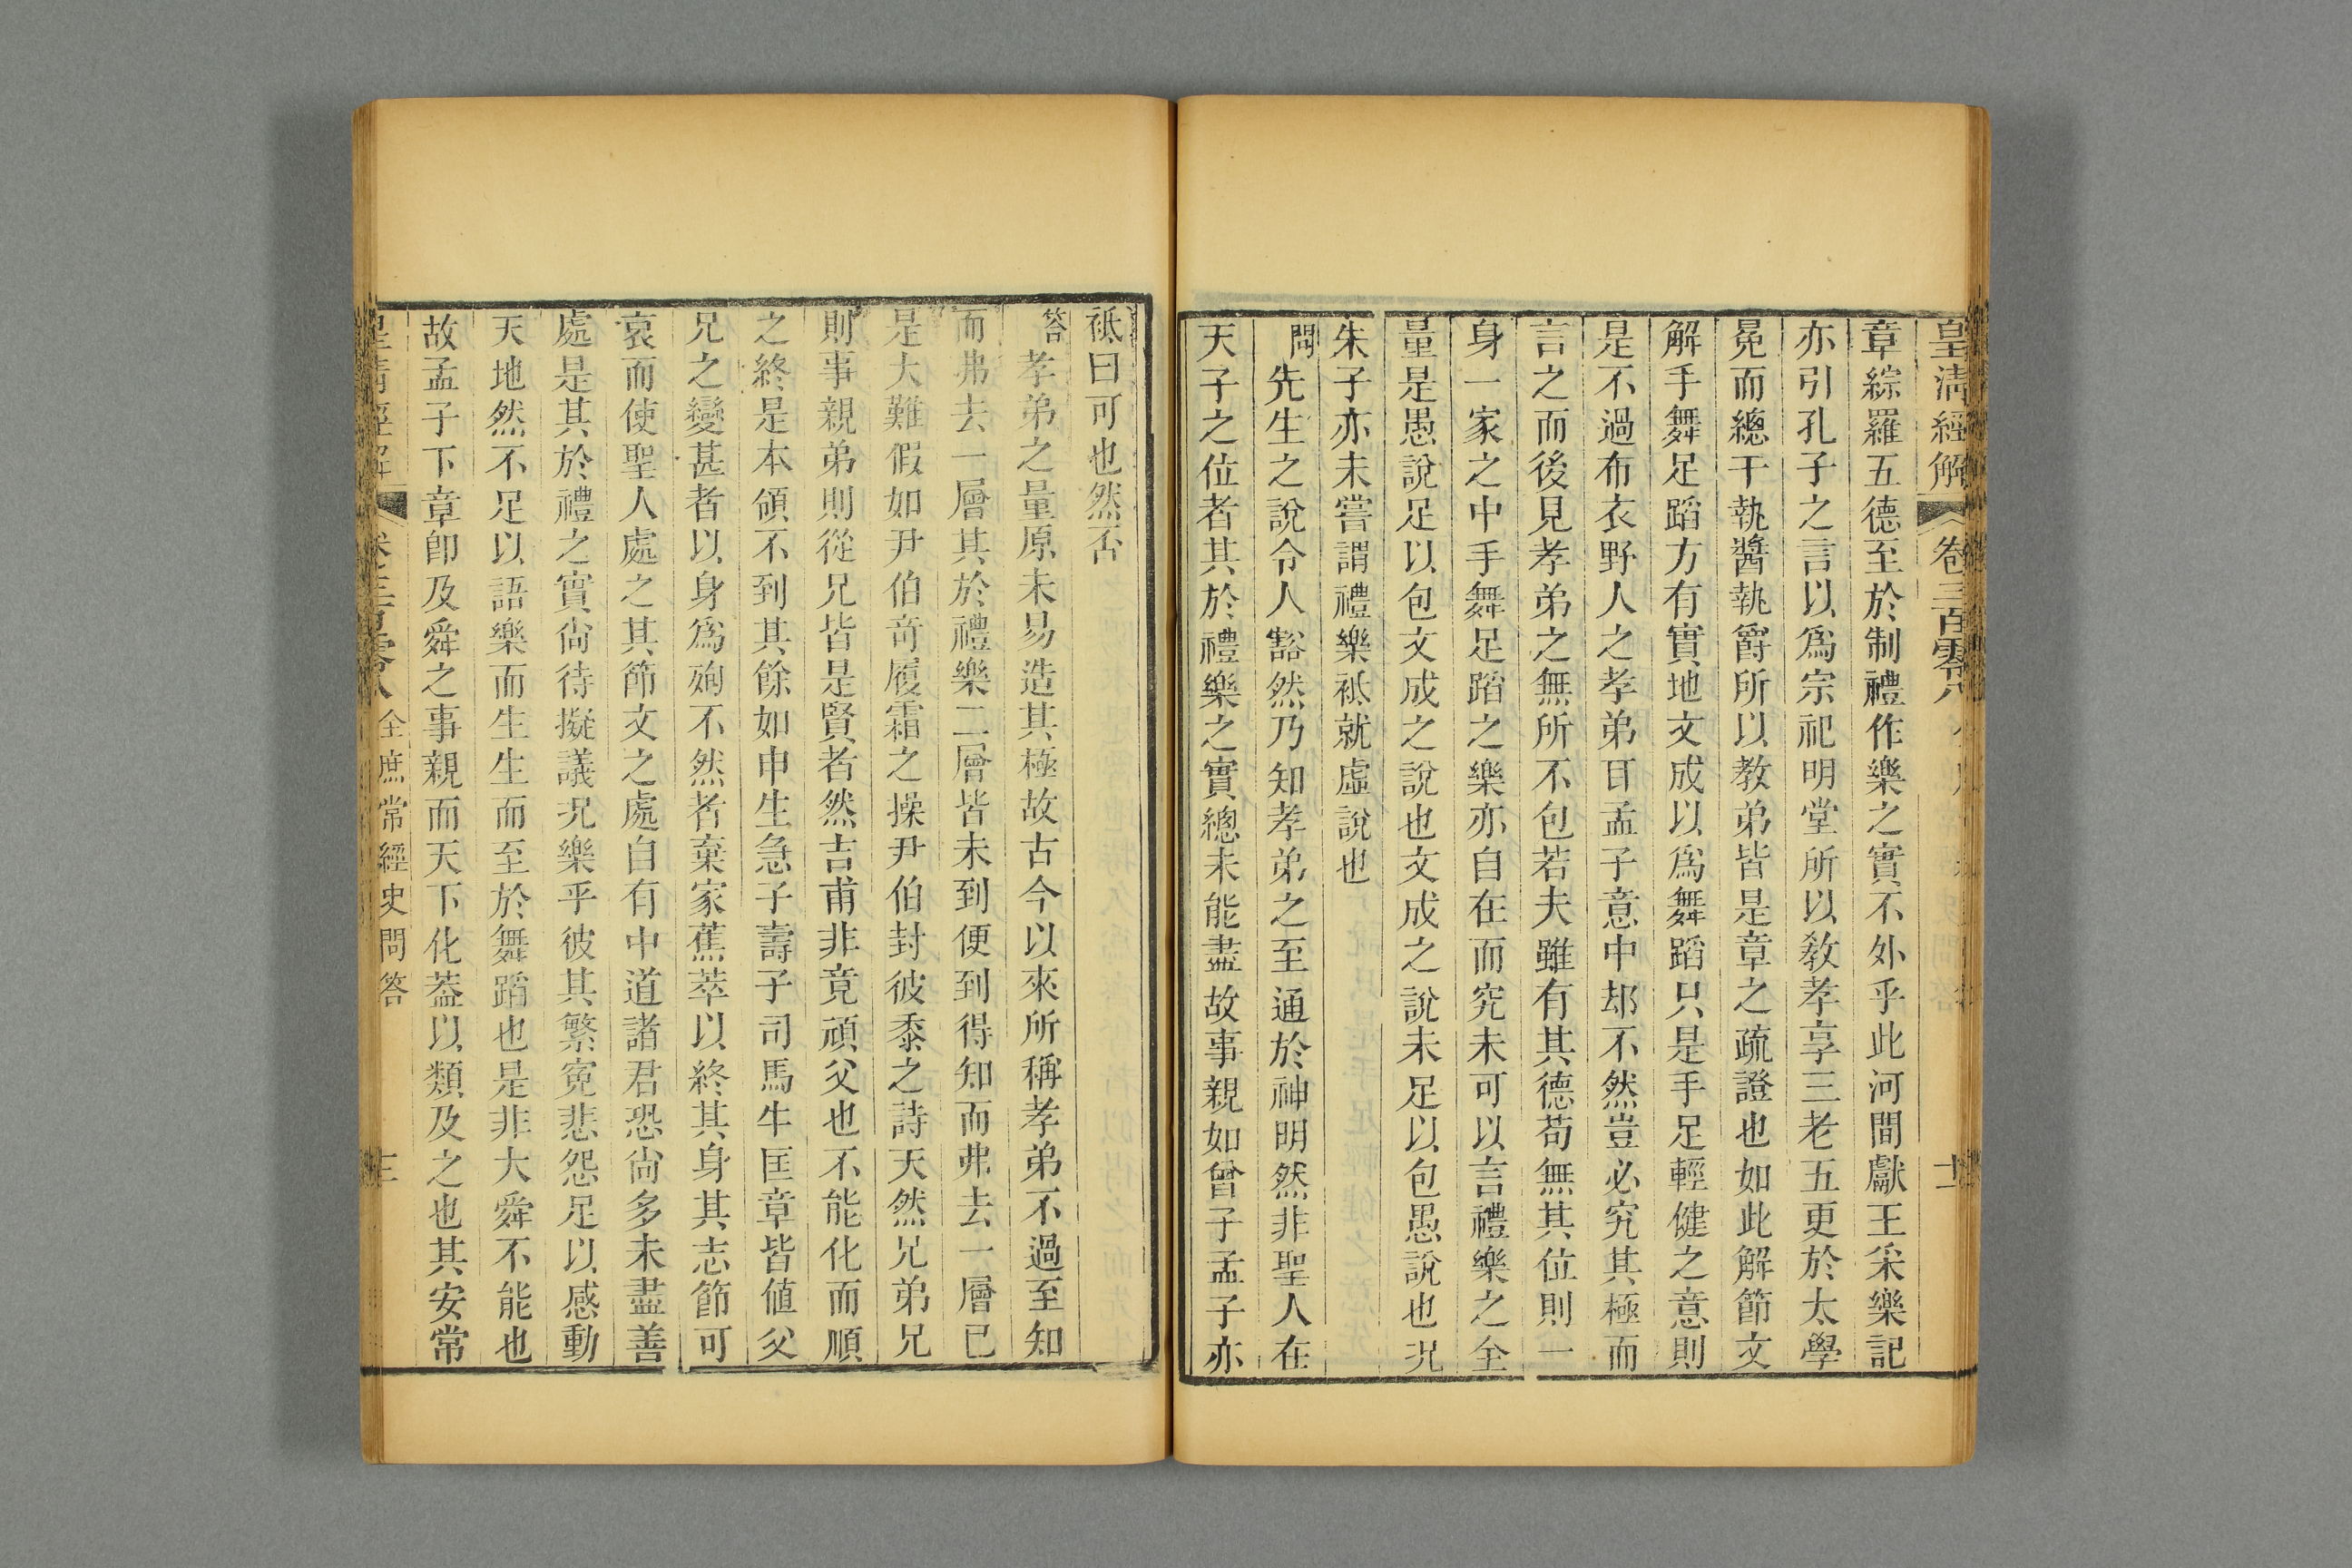 皇清經解 卷三百零八 十二
章綜羅五德至於制禮作樂之實不外乎此河間獻王采樂記
亦引孔子之言以爲宗祀明堂所以教孝享三老五更於太學
冕而總干執醬執爵所以教弟皆是章之疏證也如此解節文
解手舞足蹈方有實地文成以爲舞蹈只是手足輕健之意則
是不過布衣野人之孝弟耳孟子意中却不然豈必究其極而
言之而後見孝弟之無所不包若夫雖有其德苟無其位則一
身一家之中手舞足蹈之樂亦自在而究未可以言禮樂之全
量是愚說足以包文成之說也文成之說未足以包愚說也況
朱子亦未嘗謂禮樂祗就虛說也
問先生之說令人豁然乃知孝弟之至通於神明然非聖人在
天子之位者其於禮樂之實總未能盡故事親如曾子孟子亦
祗曰可也然否
答孝弟之量原未易造其極故古今以來所稱孝弟不過至知
而弗去一層其於禮樂二層皆未到便到得知而弗去一層已
是大難假如尹伯奇履霜之操尹伯封彼黍之詩天然兄弟兄
則事親弟則從兄皆是賢者然吉甫非竟頑父也不能化而順
之終是本領不到其餘如申生急子壽子司馬牛匡章皆値父
兄之變甚者以身爲殉不然者棄家蕉萃以終其身其志節可
哀而使聖人處之其節文之處自有中道諸君恐尙多未盡善
處是其於禮之實尙待擬議況樂乎彼其繁寃悲怨足以感動
天地然不足以語樂而生生而至於舞蹈也是非大舜不能也
故孟子下章卽及舜之事親而天下化葢以類及之也其安常
皇清經解 卷三百零八 全庶常經史問答